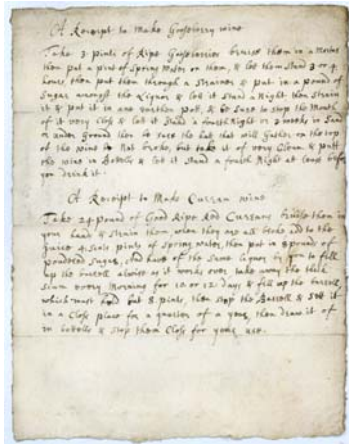 A Receipt to Make Gooseberry wine
Take 3 pints of Ripe Gooseberries bruise them in a Mortar
then put a pint of Spring Water on them, & let them Stand 3 or 4
hours, then put them through a Strainer & put in a pound of
Sugar amongst the Liquor & lett it Stand a Night then Strain
it & put it in ane Earthen Pott, & be Sure to stop the Mouth
of it very close & let it Stand a fourth Night or 3 weeks in Sand
or under Ground then be sure the hat that will Gather on the top
of the wine be Not broke, but take it of very Clean & putt
the wine in Bottells & let it Stand a fourth Night at least before
you drink it.
A Receipt to Make Curran wine
Take 24 pound of Good Ripe Red Currans bruise them in
your hand & Strain them, when they are all broke add to the
juice 4 Scots pints of spring water, then put in 8 pounds of
poudred Sugar, and have of the Same liquor by you to fill
up the barrell alwise as it works over take away the thick
Scum every Morning for 10 or 12 days & fill up the barrell,
which must hold but 8 pints, then stop the Barrell & Sett it
in a Close place for a quarter of a year, then draw it of
in bottells & stop them Close for your use.